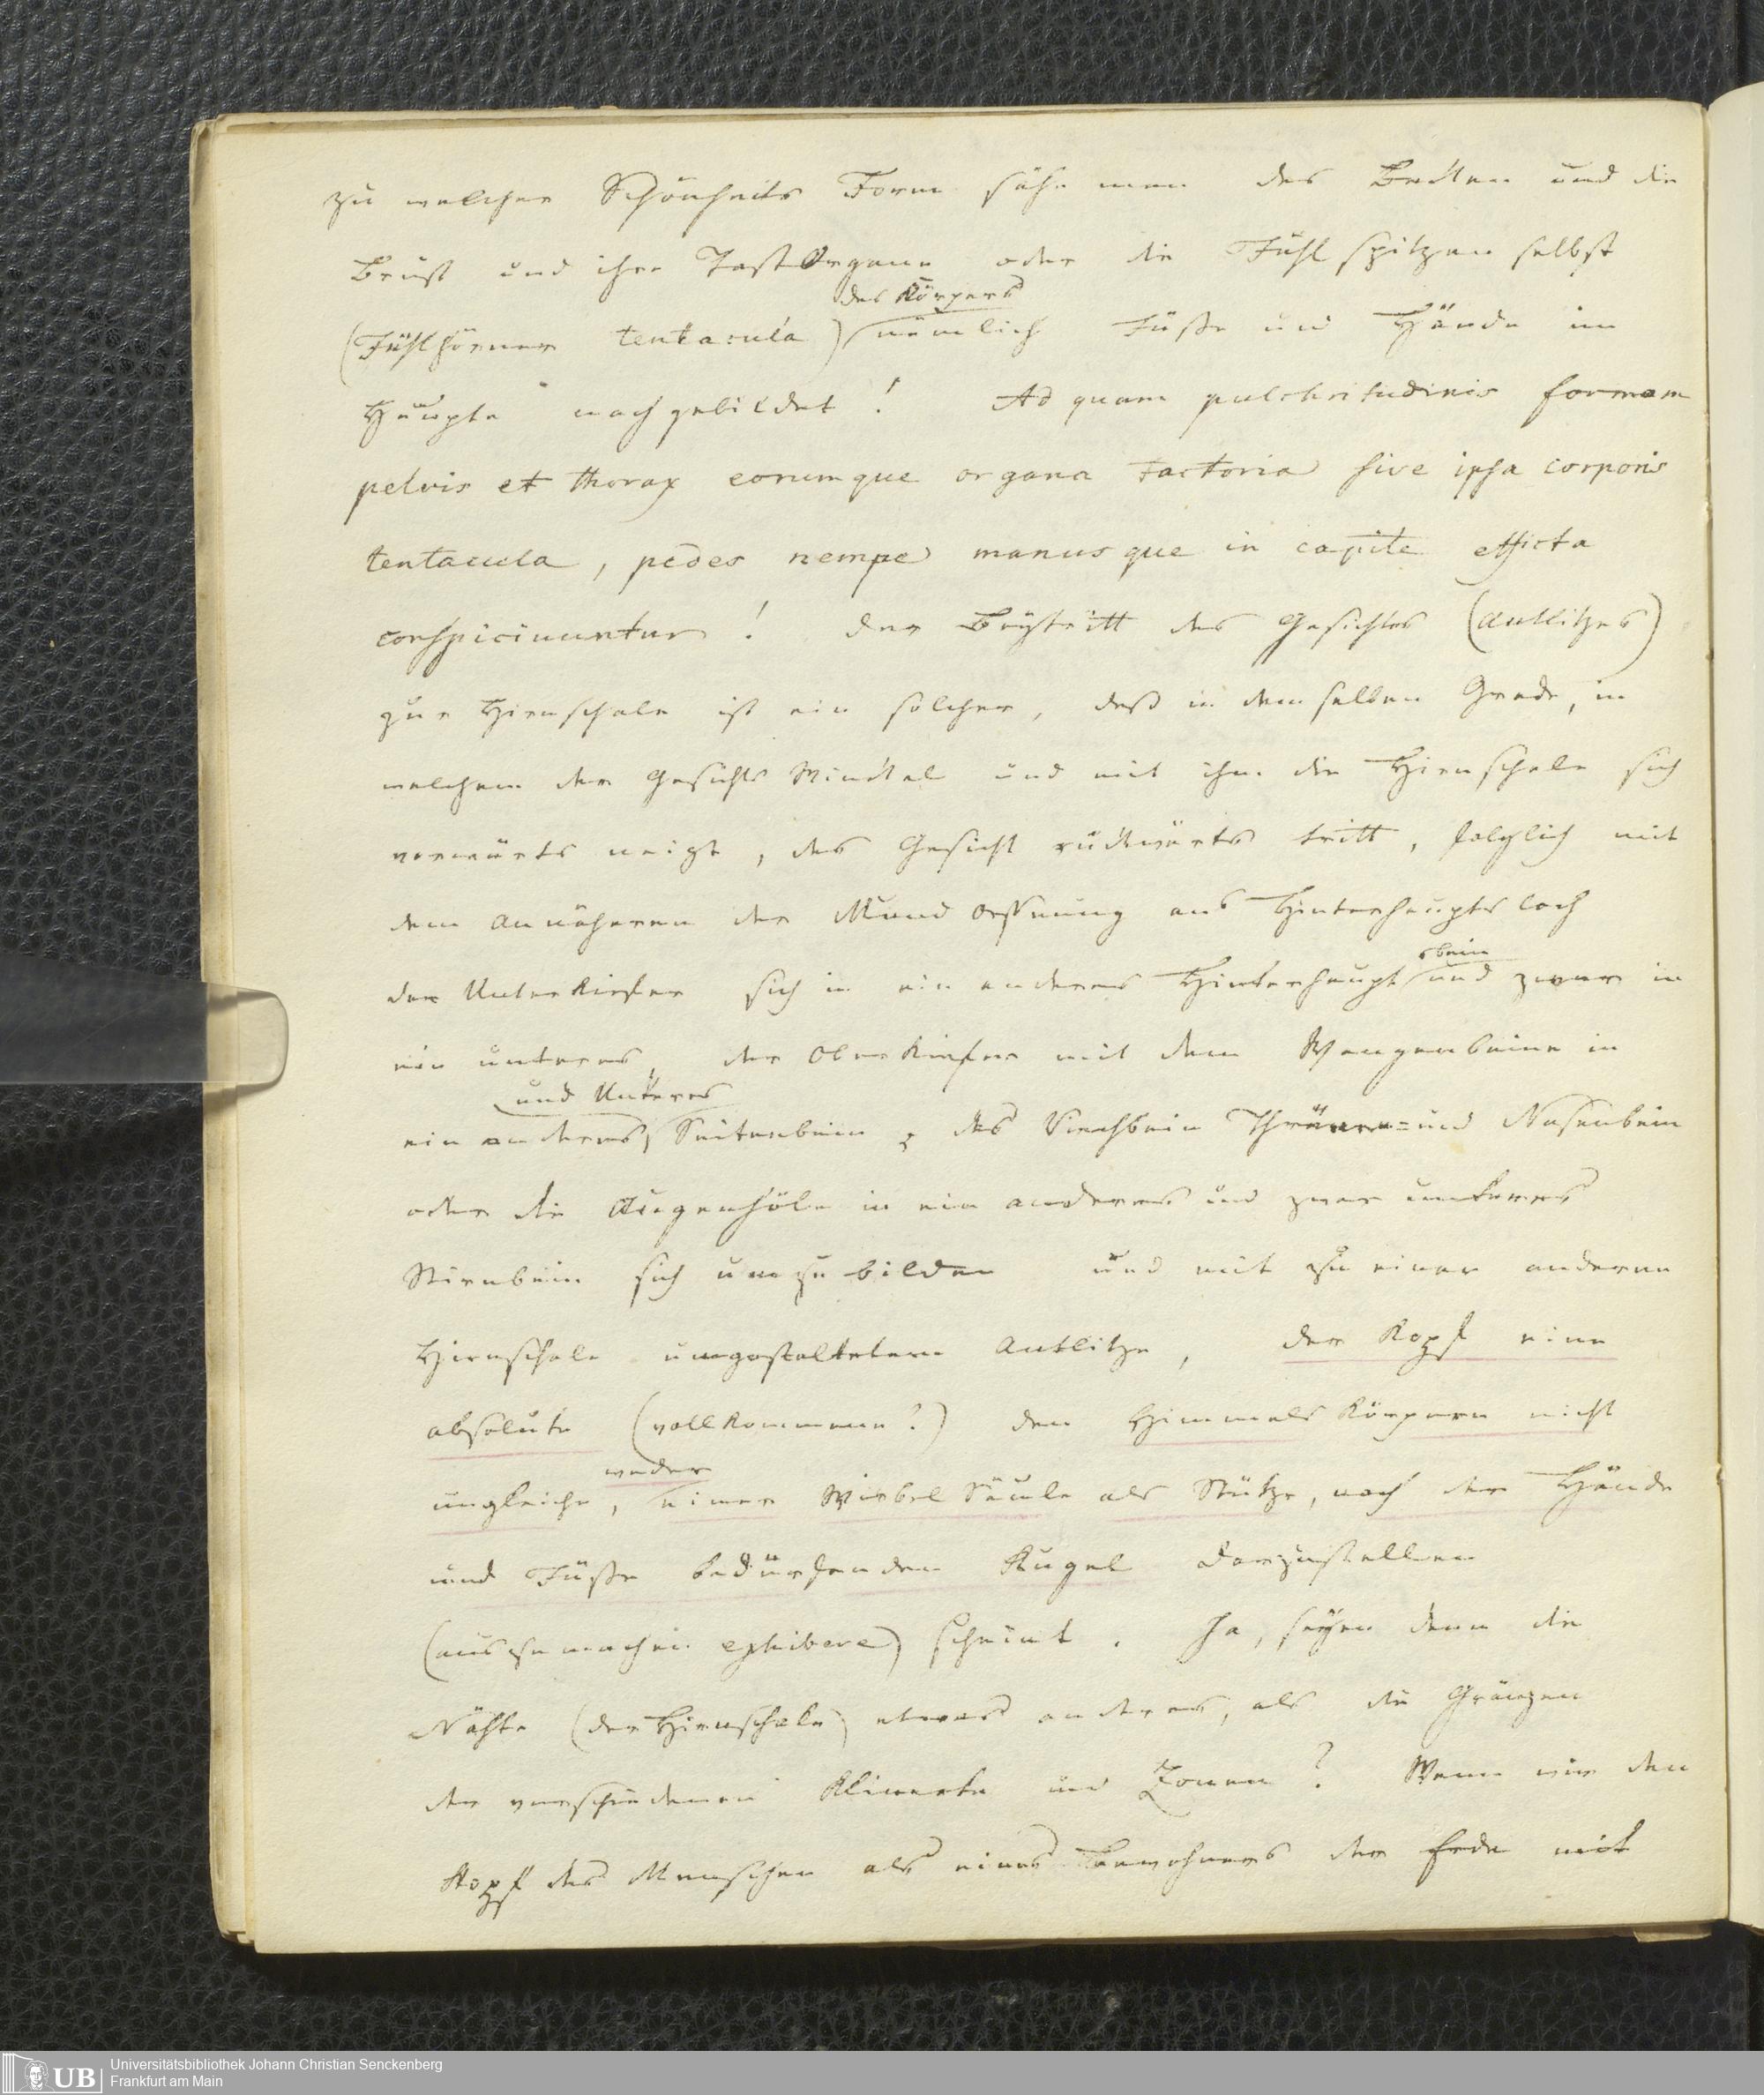 zu welcher Schönheits Form sähe man das Becken und die
Brust und ihre TastOrgane oder die Fühlspitzen selbst
des Körpers
(Fühlhörner tentacula) nämlich Füße und Hände im
Haupte nachgebildet! Ad quam pulchritudinis formam
pelvis et thorax eorumque organa tactoria sive ipsa corporis
tentacula, pedes nempe manusque in capite efficta
conspiciuuntur! der Beytritt des Gesichtes (Antlitzes)
zur Hirnschale ist ein solcher, daß in demselben Grade, in
welchem der Gesichts Winckel und mit ihm die Hirnschale sich
vorwärts neigt, das Gesicht rückwärts tritt, folglich mit
dem Annäheren der Mund Oeffnung ans Hinterhaupts loch
sbein
der Unterkiefer sich in ein anderes Hinterhaupt und zwar in
ein unteres, der Oberkiefer mit dem Wangenbeine in
und Unteres
ein anderes, Seitenbein, das Riechbein Thränen= und Nasenbein
oder die Augenhöle in ein anderes und zwar unteres
Stirnbein sich umzubilden und mit zu einer anderen
Hirnschale umgestaltetem Antlitze, der Kopf eine
absolute (vollkommene?) den Himmels Körpern nicht
weder
ungleiche, einer Wirbel Säule als Stütze, noch der Hände
und Füße bedürfenden Kugel darzustellen
(auszumachen exhibere) scheint. Ja, seyen denn die
Nähte (der Hirnschale) etwas anderes, als die Gränzen
der verschiedenen Klimate und Zonen? Wenn wir den
Kopf des Menschen als eines Bewohners der Erde mit
Universitätsbibliothek Johann Christian Senckenberg
Frankfurt am Main
UB